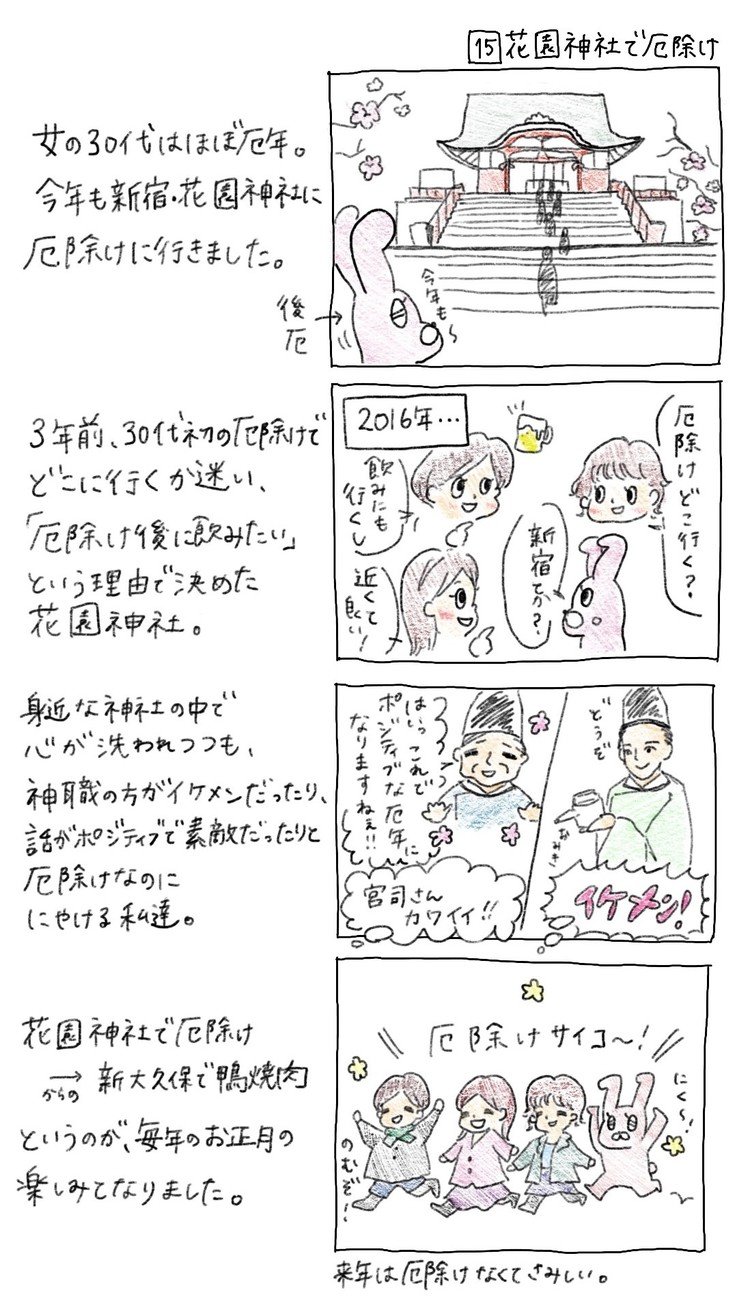 15 花園神社で厄除け
女の30代はほぼ厄年。
今年も新宿・花園神社に
厄除けに行きました。
後
厄
今年も〜
3年前、30代初の厄除けで
どこに行くか迷い、
「厄除け後に飲みたい」
という理由で決めた
花園神社。
2016年…
厄除けどこ行く?
新宿とか?
飲みにも
行くし
近くて
良い!
身近な神社の中で
心が洗われつつも、
神職の方がイケメンだったり、
話がポジティブで素敵だったりと
厄除けなのに
にやける私達。
どうぞ
おみき
イケメン!
はいっこれで
ポジティブな厄年に
なりますねぇ!!
宮司さん
カワイイ!!
花園神社で厄除け
→ 新大久保で鴨焼肉
からの
というのが、毎年のお正月の
楽しみてなりました。
厄除けサイコ〜!
にく〜!
のむぞ!
来年は厄除けなくてさみしい。